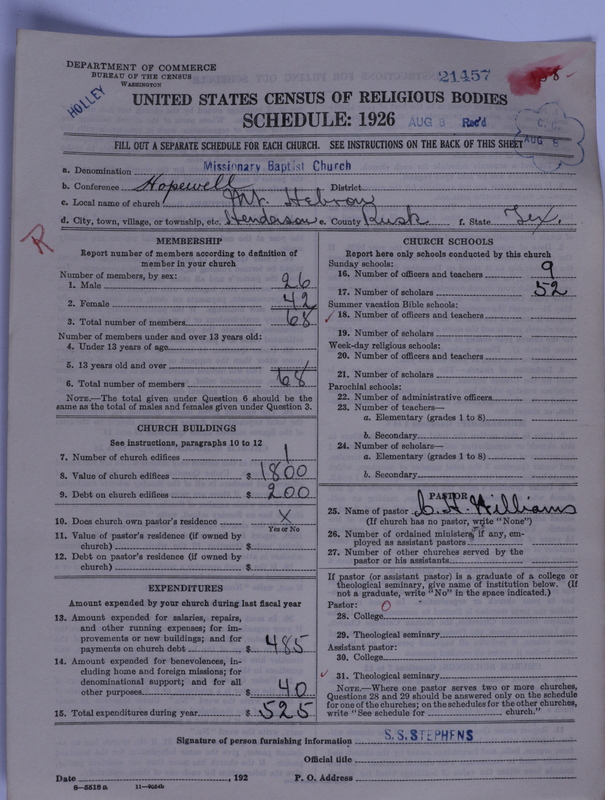 DEPARTMENT OF COMMERCE
BUREAU OF THE CENSUS
WASHINGTON
21457
HOLLEY
UNITED STATES CENSUS OF RELIGIOUS BODIES
SCHEDULE: 1926
AUG 8 Rec'd
AUG 8
FILL OUT A SEPARATE SCHEDULE FOR EACH CHURCH. SEE INSTRUCTIONS ON THE BACK OF THIS SHEET
a. Denomination Missionary Baptist Church
b. Conference Hopewell District
c. Local name of church Mt. Hebron
d. City, town, village, or township, etc. Henderson e. County Rusk f. State Tex.
R
MEMBERSHIP
Report number of members according to definition of
member in your church
Number of members, by sex:
1. Male 26
2. Female 42
3. Total number of members 68
Number of members under and over 13 years old:
4. Under 13 years of age
5. 13 years old and over
6. Total number of members 68
NOTE.—The total given under Question 6 should be the
same as the total of males and females given under Question 3.
CHURCH BUILDINGS
See instructions, paragraphs 10 to 12
7. Number of church edifices 1
8. Value of church edifices $ 1800
9. Debt on church edifices $ 200
10. Does church own pastor's residence X
Yes or No
11. Value of pastor's residence (if owned by
church) $
12. Debt on pastor's residence (if owned by
church) $
EXPENDITURES
Amount expended by your church during last fiscal year
13. Amount expended for salaries, repairs,
and other running expenses; for im-
provements or new buildings; and for
payments on church debt $ 485
14. Amount expended for benevolences, in-
cluding home and foreign missions; for
denominational support; and for all
other purposes $ 40
15. Total expenditures during year $ 525
CHURCH SCHOOLS
Report here only schools conducted by this church
Sunday schools:
16. Number of officers and teachers 9
17. Number of scholars 52
Summer vacation Bible schools:
18. Number of officers and teachers
19. Number of scholars
Week-day religious schools:
20. Number of officers and teachers
21. Number of scholars
Parochial schools:
22. Number of administrative officers
23. Number of teachers—
a. Elementary (grades 1 to 8)
b. Secondary
24. Number of scholars—
a. Elementary (grades 1 to 8)
b. Secondary
PASTOR
25. Name of pastor Williams
(If church has no pastor, write "None")
26. Number of ordained ministers, if any, em-
ployed as assistant pastors
27. Number of other churches served by the
pastor or his assistants
If pastor (or assistant pastor) is a graduate of a college or
theological seminary, give name of institution below. (If
not a graduate, write "No" in the space indicated.)
Pastor: O
28. College
29. Theological seminary
Assistant pastor:
30. College
31. Theological seminary
NOTE.—Where one pastor serves two or more churches,
Questions 28 and 29 should be answered only on the schedule
for one of the churches; on the schedules for the other churches,
write "See schedule for church."
Signature of person furnishing information S.S.STEPHENS
Official title
Date , 192 P. O. Address
8—5518a 11—9054b